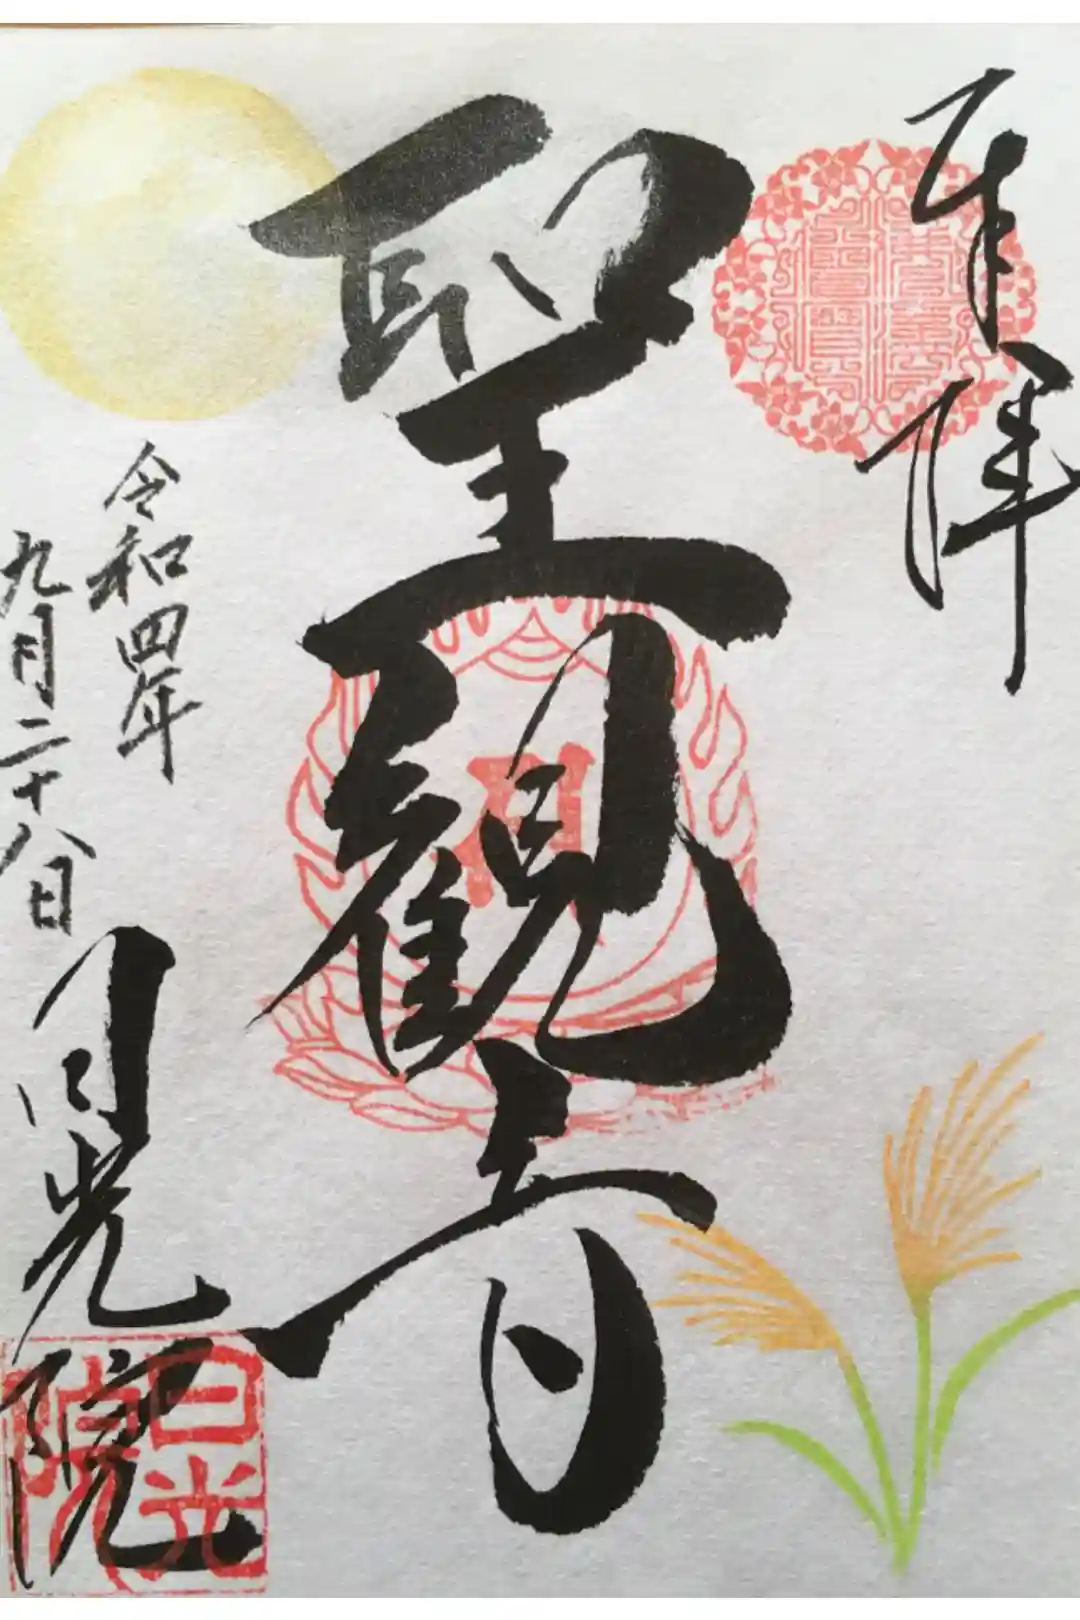 奉拝
聖観音
令和四年
九月二十八日
日光院
日光院